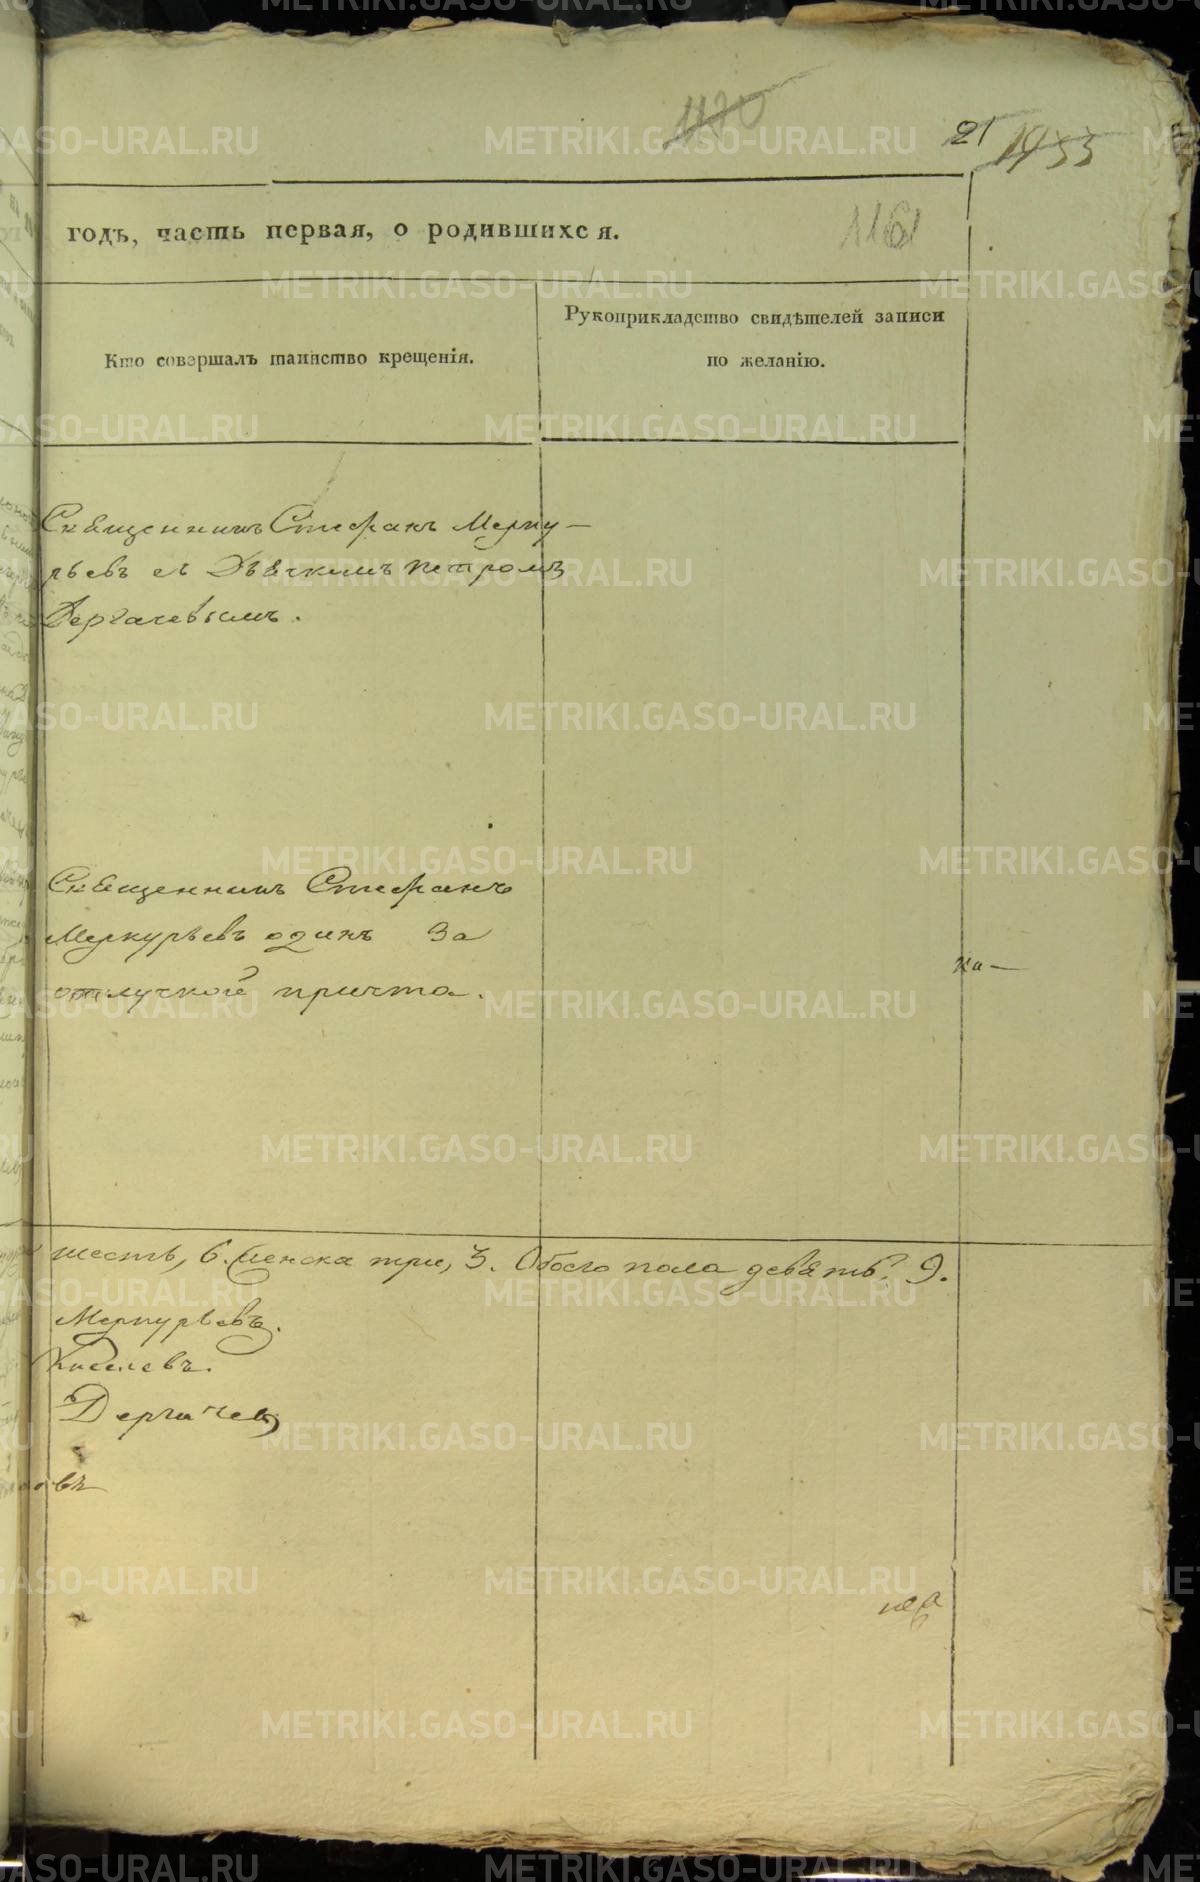 1170
21 1933
1161
годъ, часть первая, о родившихся.
Кто совершалъ таинство крещенія.
Рукоприкладство свидѣтелей записи
по желанію.
Священникъ Стефанъ Мерку-
рьевъ съ Дьячкомъ Петромъ
Дергачевымъ.
Священникъ Стефанъ
Меркурьевъ одинъ За
отлучкой причта.
ка-
шесть, 6. Женска три, 3. Обоего пола девять, 9.
Меркурьевъ.
Киселевъ.
Дергачевъ
овъ
METRIKI.GASO-URAL.RU